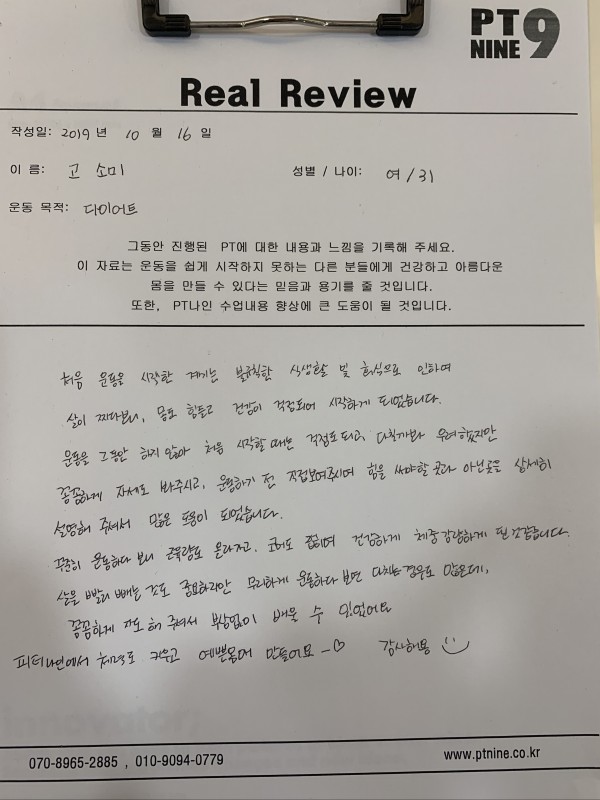 PT NINE 9
Real Review
작성일: 2019 년 10 월 16 일
이 름: 고 소미
성별 / 나이: 여 / 31
운동 목적: 다이어트
그동안 진행된 PT에 대한 내용과 느낌을 기록해 주세요.
이 자료는 운동을 쉽게 시작하지 못하는 다른 분들에게 건강하고 아름다운
몸을 만들 수 있다는 믿음과 용기를 줄 것입니다.
또한, PT나인 수업내용 향상에 큰 도움이 될 것입니다.
처음 운동을 시작한 계기는 불규칙한 식생활 및 회식으로 인하여
살이 찌다보니, 몸도 힘들고 건강이 걱정되어 시작하게 되었습니다.
운동을 그동안 하지 않아 처음 시작할 때는 걱정도 되고, 다칠까봐 우려했지만
꼼꼼하게 자세도 봐주시고, 운동하기 전 직접보여주시며 힘을 써야할 곳과 아닌곳을 상세히
설명해 주셔서 많은 도움이 되었습니다.
꾸준히 운동하다 보니 근육량도 올라가고, 코어도 잡히며 건강하게 체중감량하게 된것같습니다.
살을 빨리 빼는 것도 중요하지만 무리하게 운동하다 보면 다치는경우도 많은데,
꼼꼼하게 지도 해 주셔서 부상없이 배울 수 있었어요
피티나인에서 체력도 키우고 예쁜몸매 만들어요~♡ 감사해용
070-8965-2885 , 010-9094-0779
www.ptnine.co.kr